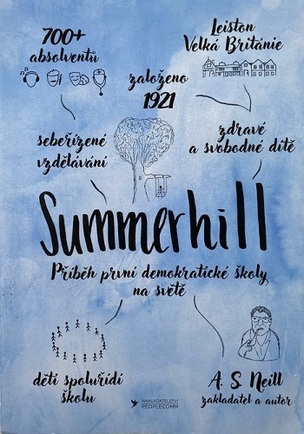 700+
absolventů
Leiston
Velká Británie
založeno
1921
sebeřízené
vzdělávání
zdravé
a svobodné dítě
Summerhill
Příběh první demokratické školy
na světě
děti spoluřídí
školu
A. S. Neill
zakladatel a autor
NAKLADATELSTVÍ
PEOPLECOMM